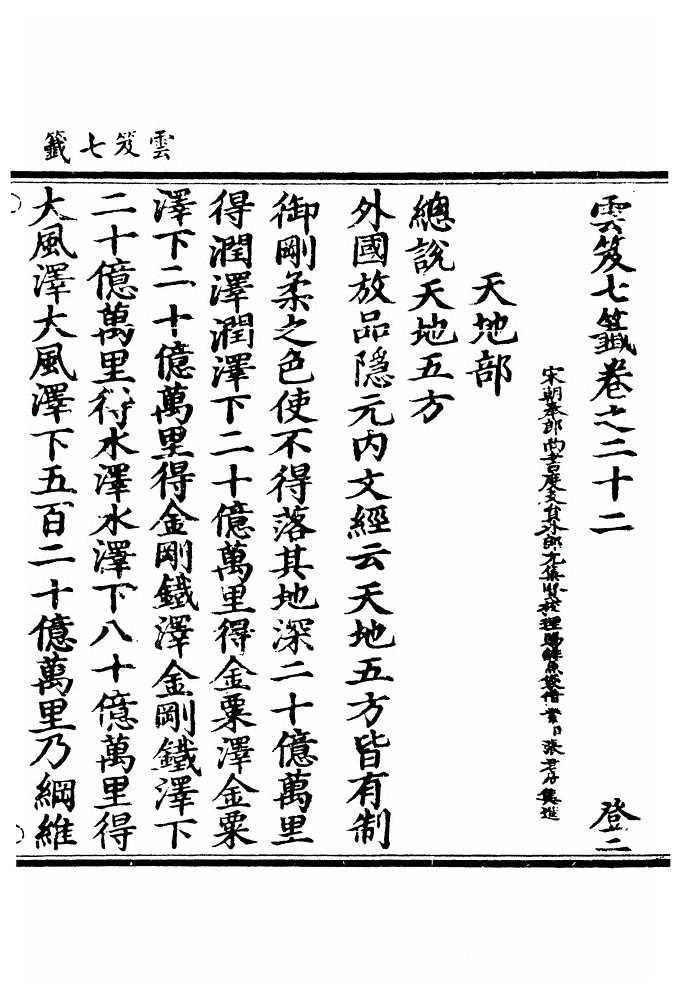 雲笈七籤
雲笈七籤卷之二十二 登二
宋朝奉郎尚書度支員外郎充集賢校理賜緋魚袋借紫臣張君房集進
天地部
總說天地五方
外國放品隱元內文經云天地五方皆有制
御剛柔之色使不得落其地深二十億萬里
得潤澤潤澤下二十億萬里得金粟澤金粟
澤下二十億萬里得金剛鐵澤金剛鐵澤下
二十億萬里得水澤水澤下八十億萬里得
大風澤大風澤下五百二十億萬里乃綱維